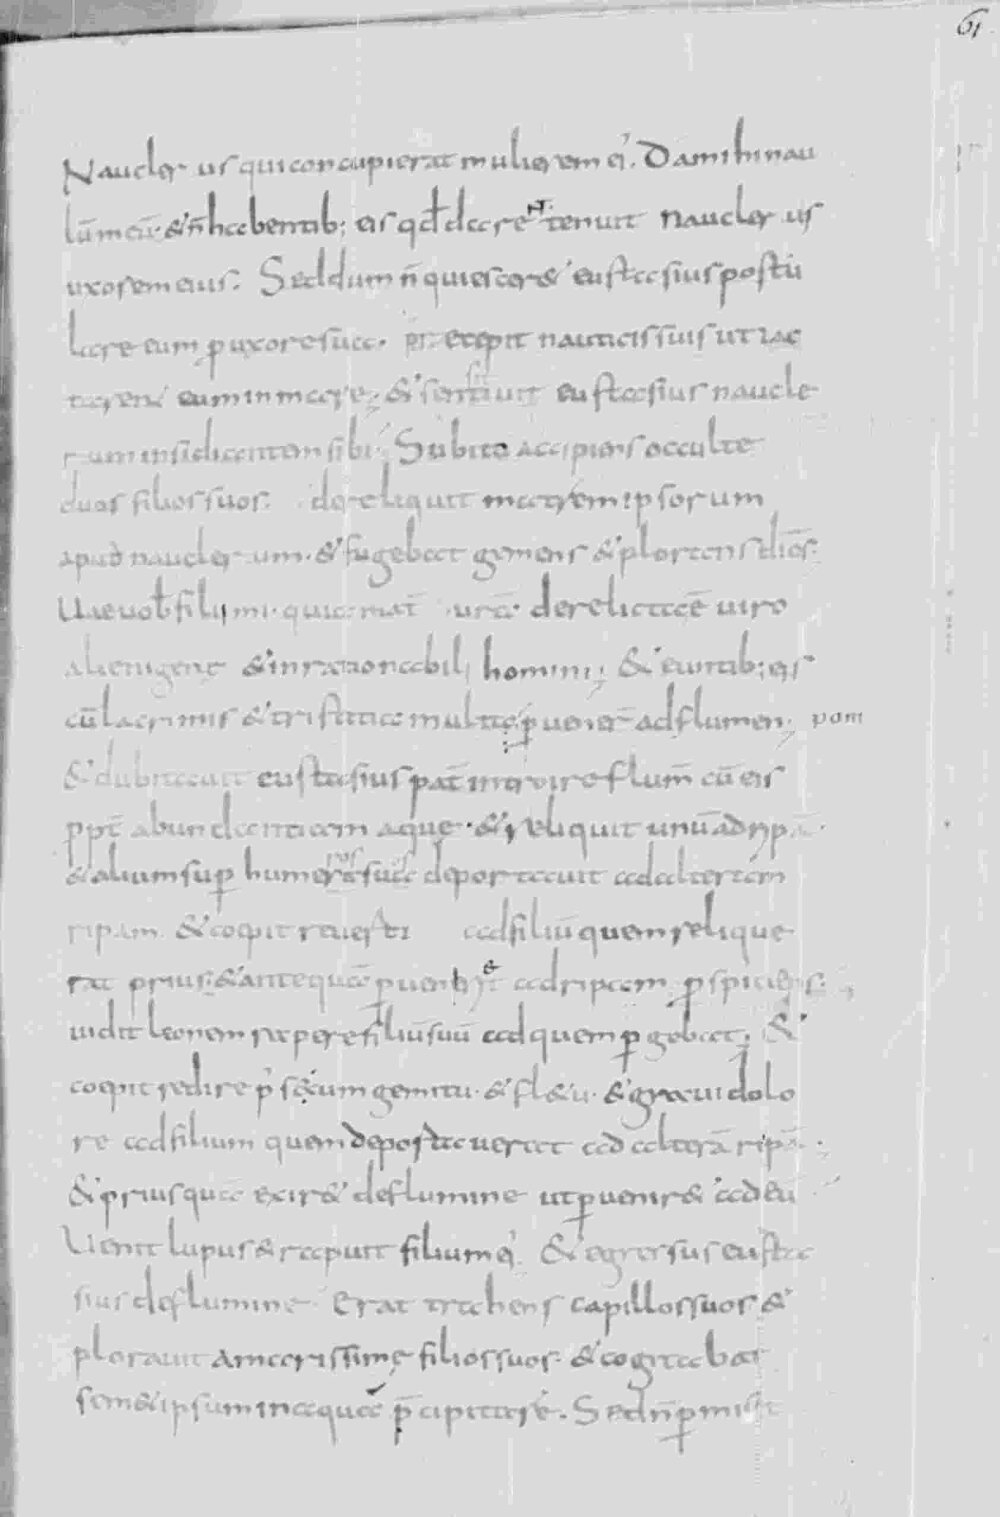 61
Nauclerus qui concupierat mulierem ei'. Da mihi nau
lū meū. & n̄ habentib; eis qd darent. tenuit nauclerus
uxorem eius. Sed dum n̄ quiescer& eustasius postu
lare eum ꝑ uxore sua. p̄cepit nauticis suis ut iac
tarent eum in mare; & sentiuit eustasius naucle
rum insidiantem sibi; Subito accipiens occulte
duos filios suos. dereliquit matrem ipsorum
apud nauclerum. & fugebat gemens & plorans dicēs:
Uae uob filii mi. quia mat̄ urā. derelicta ē uiro
alienigene & inrationabili homini; & euntib; eis
cū lacrimis & tristitia multa ꝑuener̄ ad flumen; pom
& dubitauit eustasius pat̄ introire flum̄ cū eis
ppt̄ abundantiam aque. & reliquit unū ad ripā.
& alium sup humeros suos deportauit ad alteram
ripam & coepit reuerti ad filiū quem relique
rat prius. & antequā ꝑuenir& ad ripam ꝑspiciens.
uidit leonem rapere filiū suū ad quem ꝑgebat. &
coepit redire p' secum gemitu. & fl&u. & graui dolo
re ad filium quem deportauerat ad alterā ripā.
& priusquā exir& de flumine ut ꝑuenir& ad eū
Uenit lupus & rapuit filium ei'. & egressus eusta
sius de flumine. Erat trahens capillos suos &
plorauit amarissime filios suos. & cogitabat
sem&ipsum in aqua p̄cipitare. Sed n̄ ꝑmisit